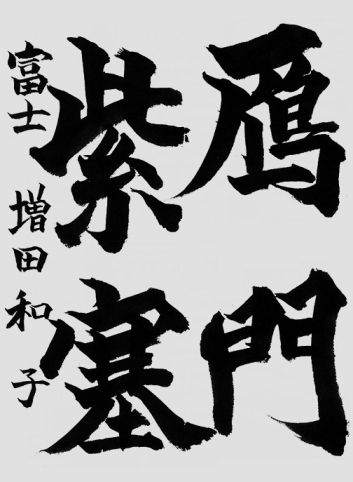 鴈門
紫塞
富士 増田和子